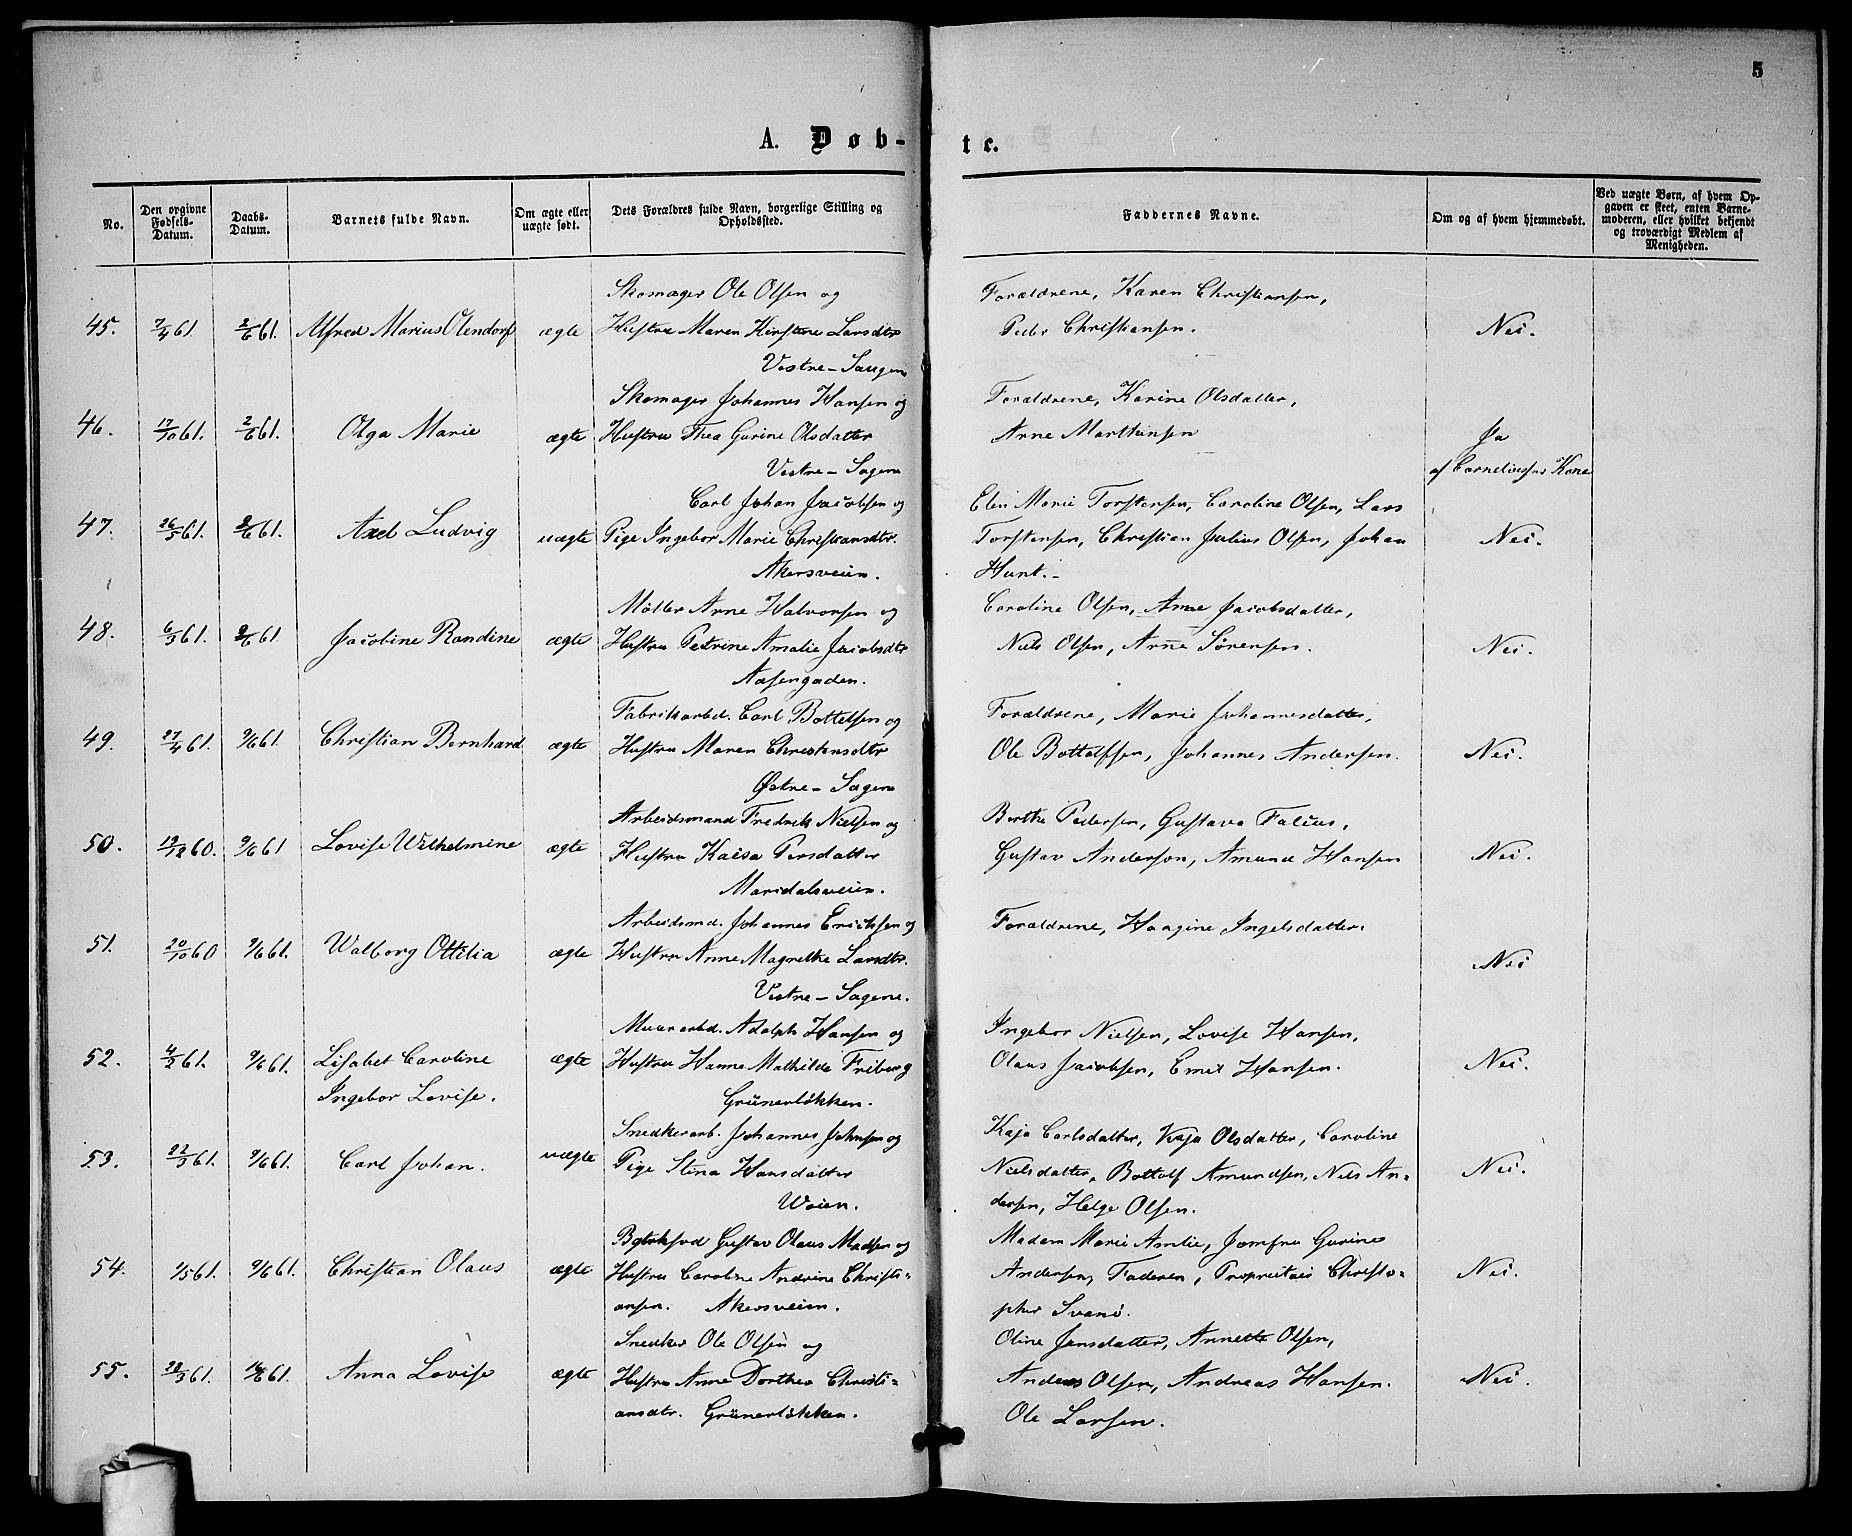 5
A. Døb-
te.
No.
Den opgivne Fødsels-Datum.
Daabs-Datum.
Barnets fulde Navn.
Om ægte eller uægte født.
Dets Forældres fulde Navn, borgerlige Stilling og Opholdssted.
Faddernes Navne.
Om og af hvem hjemmedøbt.
Ved uægte Børn, af hvem Opgaven er skeet, enten Barnemoderen, eller hvilket bekjendt og troværdigt Medlem af Menigheden.
Skomager Ole Olsen og
Forældrene, Karen Christiansen,
45. 7/4 61. 2/6 61. Alfred Marius Olendorf ægte Hustru Maren Kirstine Larsdtr Peder Christiansen. Nei.
Vestre-Saugene
Skomager Johannes Hansen og
Forældrene, Karine Olsdatter,
46. 17/10 61. 2/6 61. Olga Marie ægte Hustru Thea Gurine Olsdatter Arne Marthinsen Ja
Vestre-Sagene af Corneliussens Kone
Carl Johan Jacobsen og
Elen Marie Torstensen, Caroline Olsen, Lars
47. 26/5 61. 2/6 61. Axel Ludvig uægte Pige Ingebor Marie Christiansdtr. Torstensen, Christian Julius Olsen, Johan Nei.
Akersveien. Hunt.-
Møller Arne Halvorsen og
Caroline Olsen, Anne Jacobsdatter,
48. 6/3 61. 2/6 61. Jacobine Randine ægte Hustru Petrine Amalie Jacobsdtr Niels Olsen, Arne Sørensen. Nei.
Aasengaden.
Fabrikarbd. Carl Bottelsen og
Forældrene, Marie Johannesdatter,
49. 27/4 61. 9/6 61. Christian Bernhard ægte Hustru Maren Christensdtr Ole Bottolfsen, Johannes Andersen. Nei.
Østre-Sagene
Arbeidsmand Fredrik Nielsen og
Berthe Pedersen, Gustava Falius,
50. 19/12 60. 9/6 61 Lovise Wilhelmine ægte Hustru Kaisa Persdatter Gustav Anderson, Amund Hansen Nei.
Maridalsveien.
Arbeidsmd. Johannes Ericksen og
Forældrene, Haagine Ingelsdatter.
51. 20/10 60 9/6 61. Walborg Ottilia ægte Hustru Anne Magrethe Larsdtr. Nei
Vestre-Sagene.
Muurarbd. Adolph Hansen og
Ingebor Nielsen, Lovise Hansen,
52. 4/2 61. 9/6 61. Lisabet Caroline ægte Hustru Hanna Mathilde Friberg Olaus Jacobsen, Emil Hansen. Nei.
Ingebor Lovise. Grünerløkken.
Snedkerarb. Johannes Johnsen og
Kaja Carlsdatter, Kaja Olsdatter, Caroline
53. 22/3 61. 9/6 61. Carl Johan. uægte Pige Stina Hansdatter Nielsdatter, Bottolf Amundsen, Nils An= Nei.
Woien. dersen, Helge Olsen.
Gustav Olaus Madsen og
Madam Marie Amlie, Jomfru Gurine
54. 1/5 61. 9/6 61. Christian Olaus ægte Hustru Caroline Andrine Christi= Andersen, Faderen, Proprietær Christo= Nei.
ansen. Akersveien. pher Svanø.
Snedker Ole Olsen og
Oline Jensdatter, Annette Olsen,
55. 28/3 61. 16/6 61. Anna Lovise ægte Hustru Anne Dorthea Christi= Andreas Olsen, Andreas Hansen. Nei.
ansdtr. Grünerløkken. Ole Larsen.